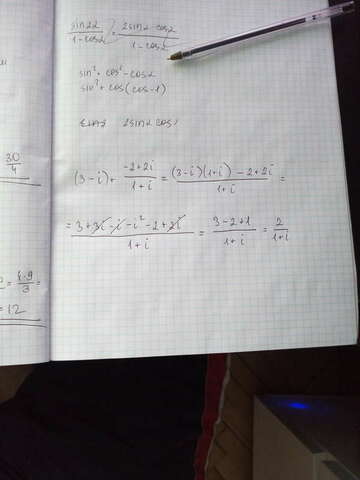 sin2α / 1-cosα = 2sinα·cosα / 1-cosα
sin² + cos² - cosα
sin² + cos(cos-1)
2sinα cos
(3-i) + -2+2i / 1+i = (3-i)(1+i) -2+2i / 1+i =
= 3+3i-i-i²-2+2i / 1+i = 3-2+1 / 1+i = 2 / 1+i
30 / 4
= 4·9 / 3 =
= 12